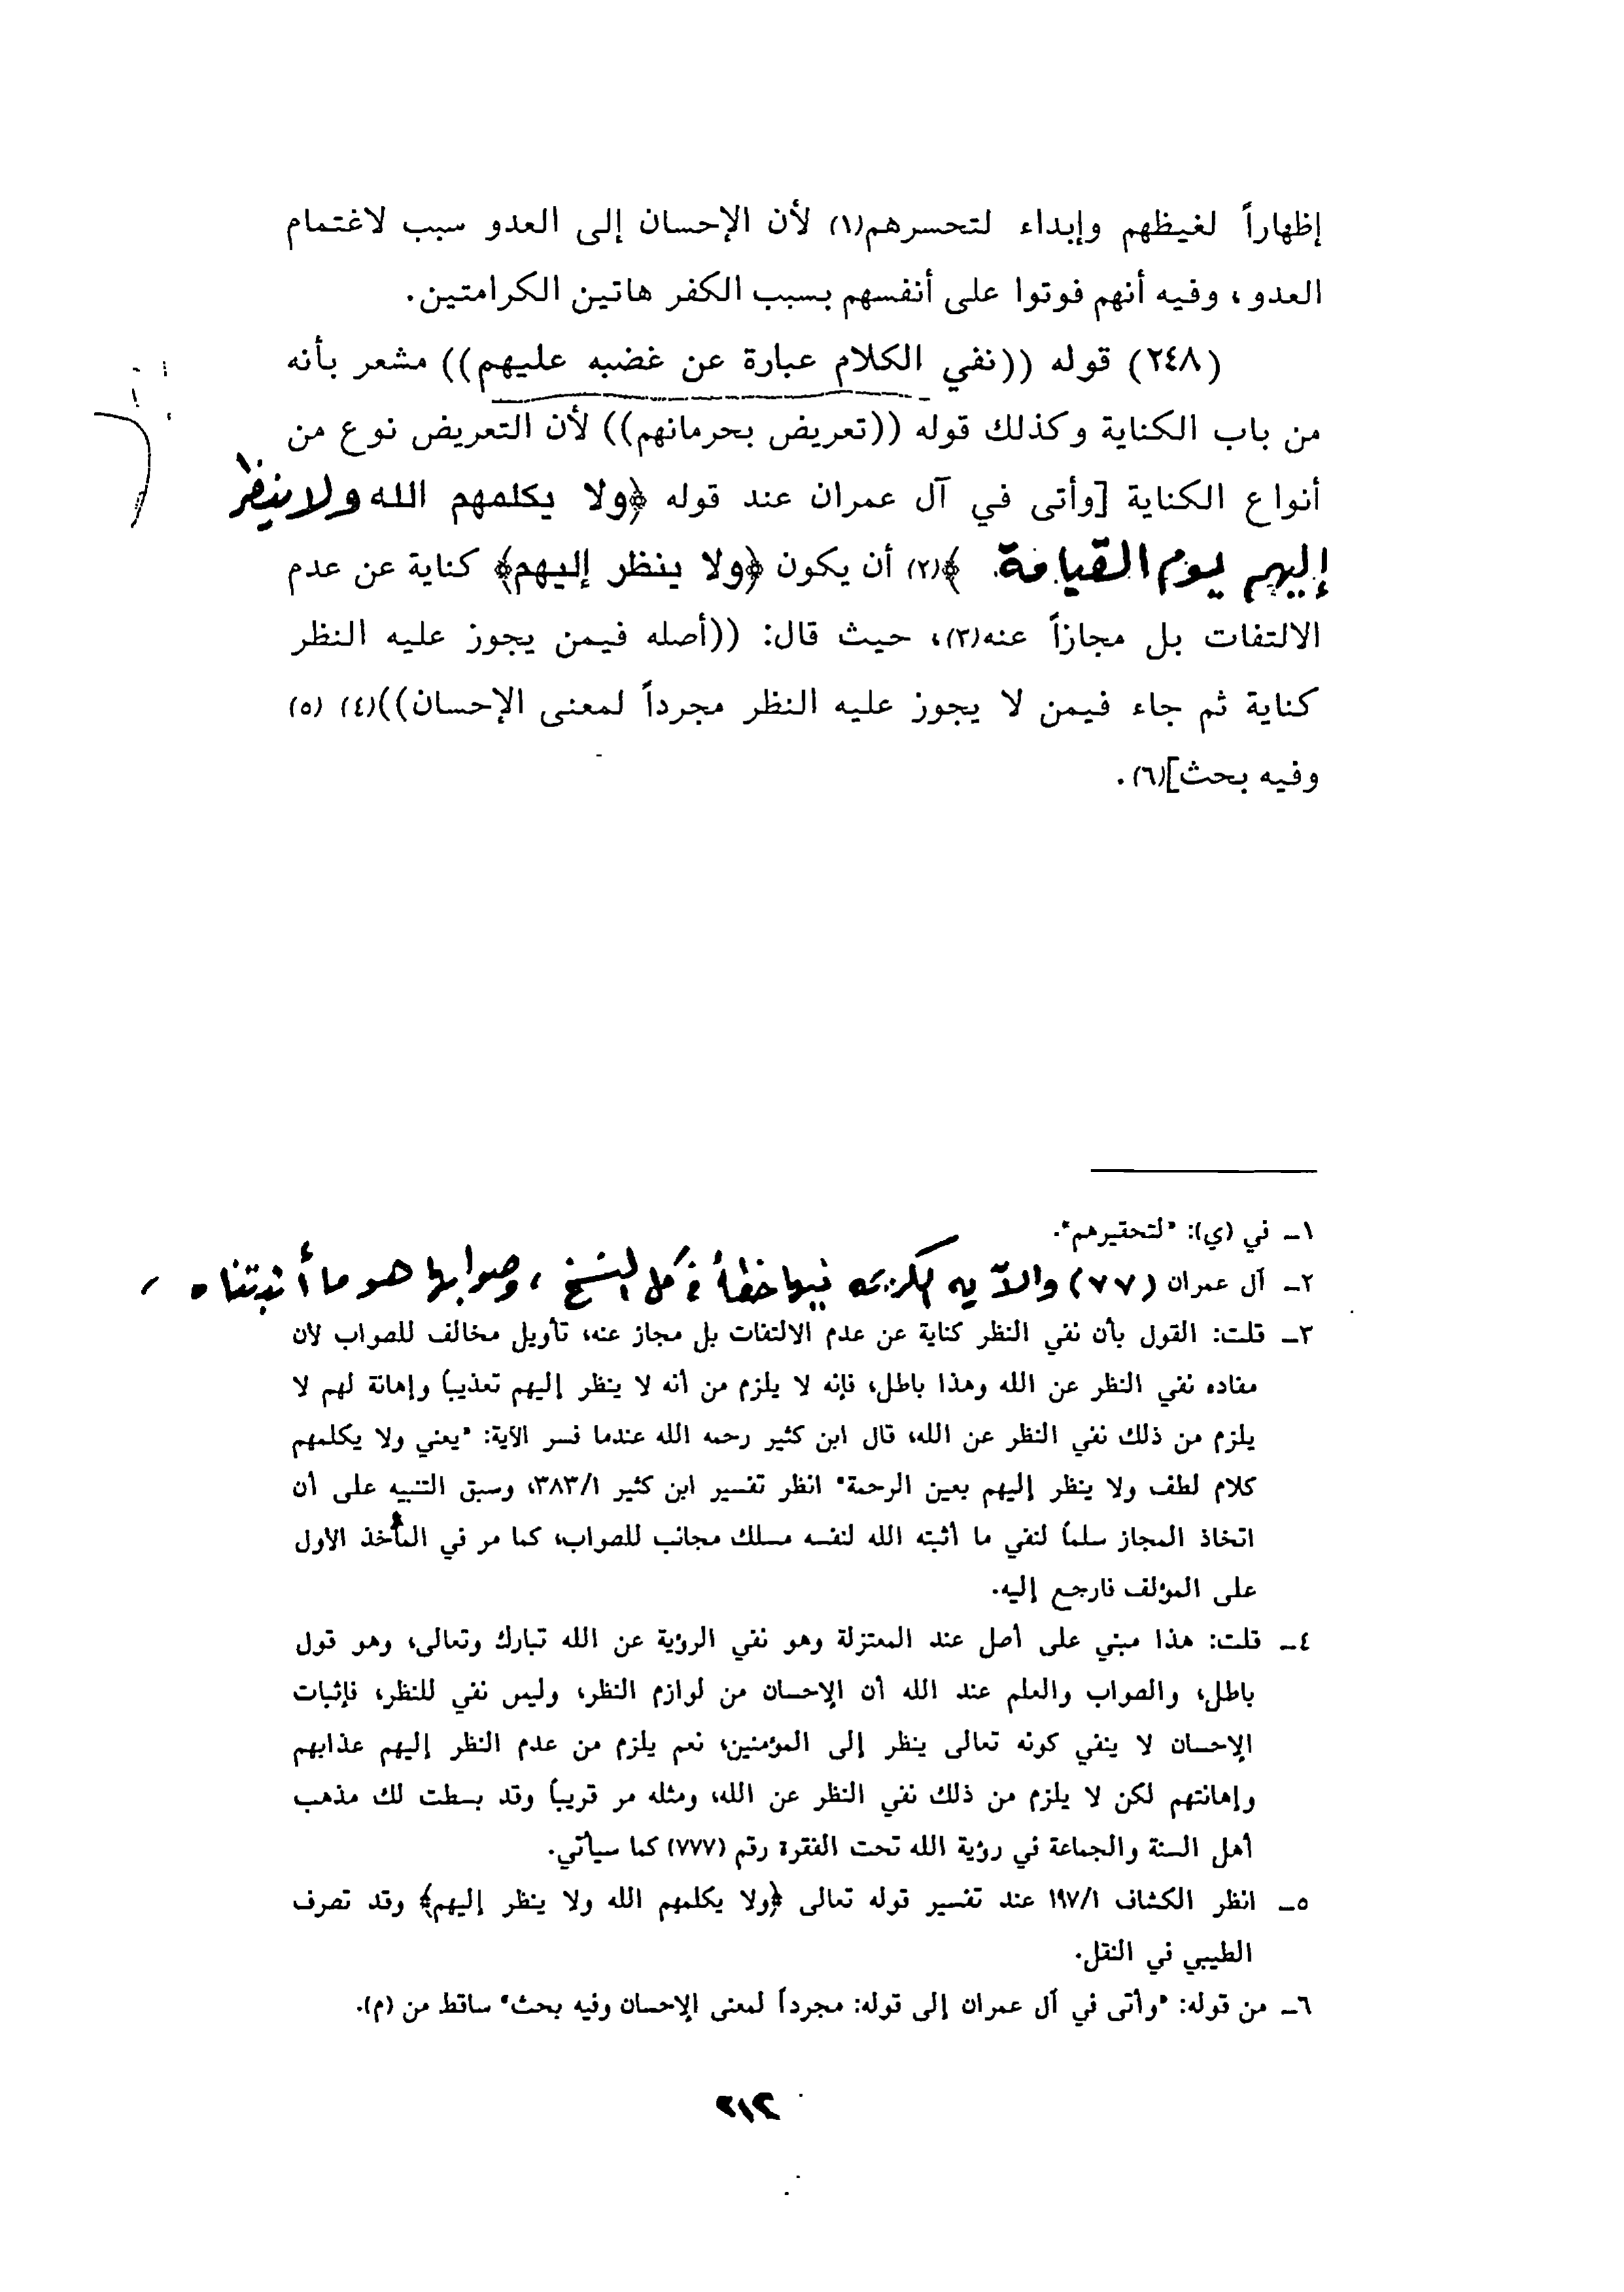 إظهاراً لغيظهم وإبداء لتحسرهم(١) لأن الإحسان إلى العدو سبب لاغتمام
العدو، وفيه أنهم فوتوا على أنفسهم بسبب الكفر هاتين الكرامتين.
(٢٤٨) قوله ((نفي الكلام عبارة عن غضبه عليهم)) مشعر بأنه
من باب الكناية وكذلك قوله ((تعريض بحرمانهم)) لأن التعريض نوع من
أنواع الكناية [وأتى في آل عمران عند قوله ﴿ولا يكلمهم الله ولا ينظر
إليهم يوم القيامة﴾(٢) أن يكون ﴿ولا ينظر إليهم﴾ كناية عن عدم
الالتفات بل مجازاً عنه(٣)، حيث قال: ((أصله فيمن يجوز عليه النظر
كناية ثم جاء فيمن لا يجوز عليه النظر مجرداً لمعنى الإحسان))(٤) (٥)
وفيه بحث](٦).
١ـ في (ي): "لتحقيرهم".
٢ـ آل عمران (٧٧) والآيه الكريمه فيها خطأ في كل النسخ، وصوابها هو ما أثبتناه،
٣ـ قلت: القول بأن نفي النظر كناية عن عدم الالتفات بل مجاز عنه، تأويل مخالف للصواب لأن
مفاده نفي النظر عن الله وهذا باطل، فإنه لا يلزم من أنه لا ينظر إليهم تعذيباً وإهانة لهم لا
يلزم من ذلك نفي النظر عن الله، قال ابن كثير رحمه الله عندما فسر الآية: "يعني ولا يكلمهم
كلام لطف ولا ينظر إليهم بعين الرحمة" انظر تفسير ابن كثير ٣٨٣/١، وسبق التنبيه على أن
اتخاذ المجاز سلماً لنفي ما أثبته الله لنفسه مسلك مجانب للصواب، كما مر في المأخذ الأول
على المؤلف فارجع إليه.
٤ـ قلت: هذا مبني على أصل عند المعتزلة وهو نفي الرؤية عن الله تبارك وتعالى، وهو قول
باطل، والصواب والعلم عند الله أن الإحسان من لوازم النظر، وليس نفي للنظر، فإثبات
الإحسان لا ينفي كونه تعالى ينظر إلى المؤمنين، نعم يلزم من عدم النظر إليهم عذابهم
وإهانتهم لكن لا يلزم من ذلك نفي النظر عن الله، ومثله مر قريباً وقد بسطت لك مذهب
أهل السنة والجماعة في رؤية الله تحت الفقرة رقم (٧٧٧) كما سيأتي.
٥ـ انظر الكشاف ١٩٧/١ عند تفسير قوله تعالى ﴿ولا يكلمهم الله ولا ينظر إليهم﴾ وقد تصرف
الطيبي في النقل.
٦ـ من قوله: "وأتى في آل عمران إلى قوله: مجرداً لمعنى الإحسان وفيه بحث" ساقط من (م).